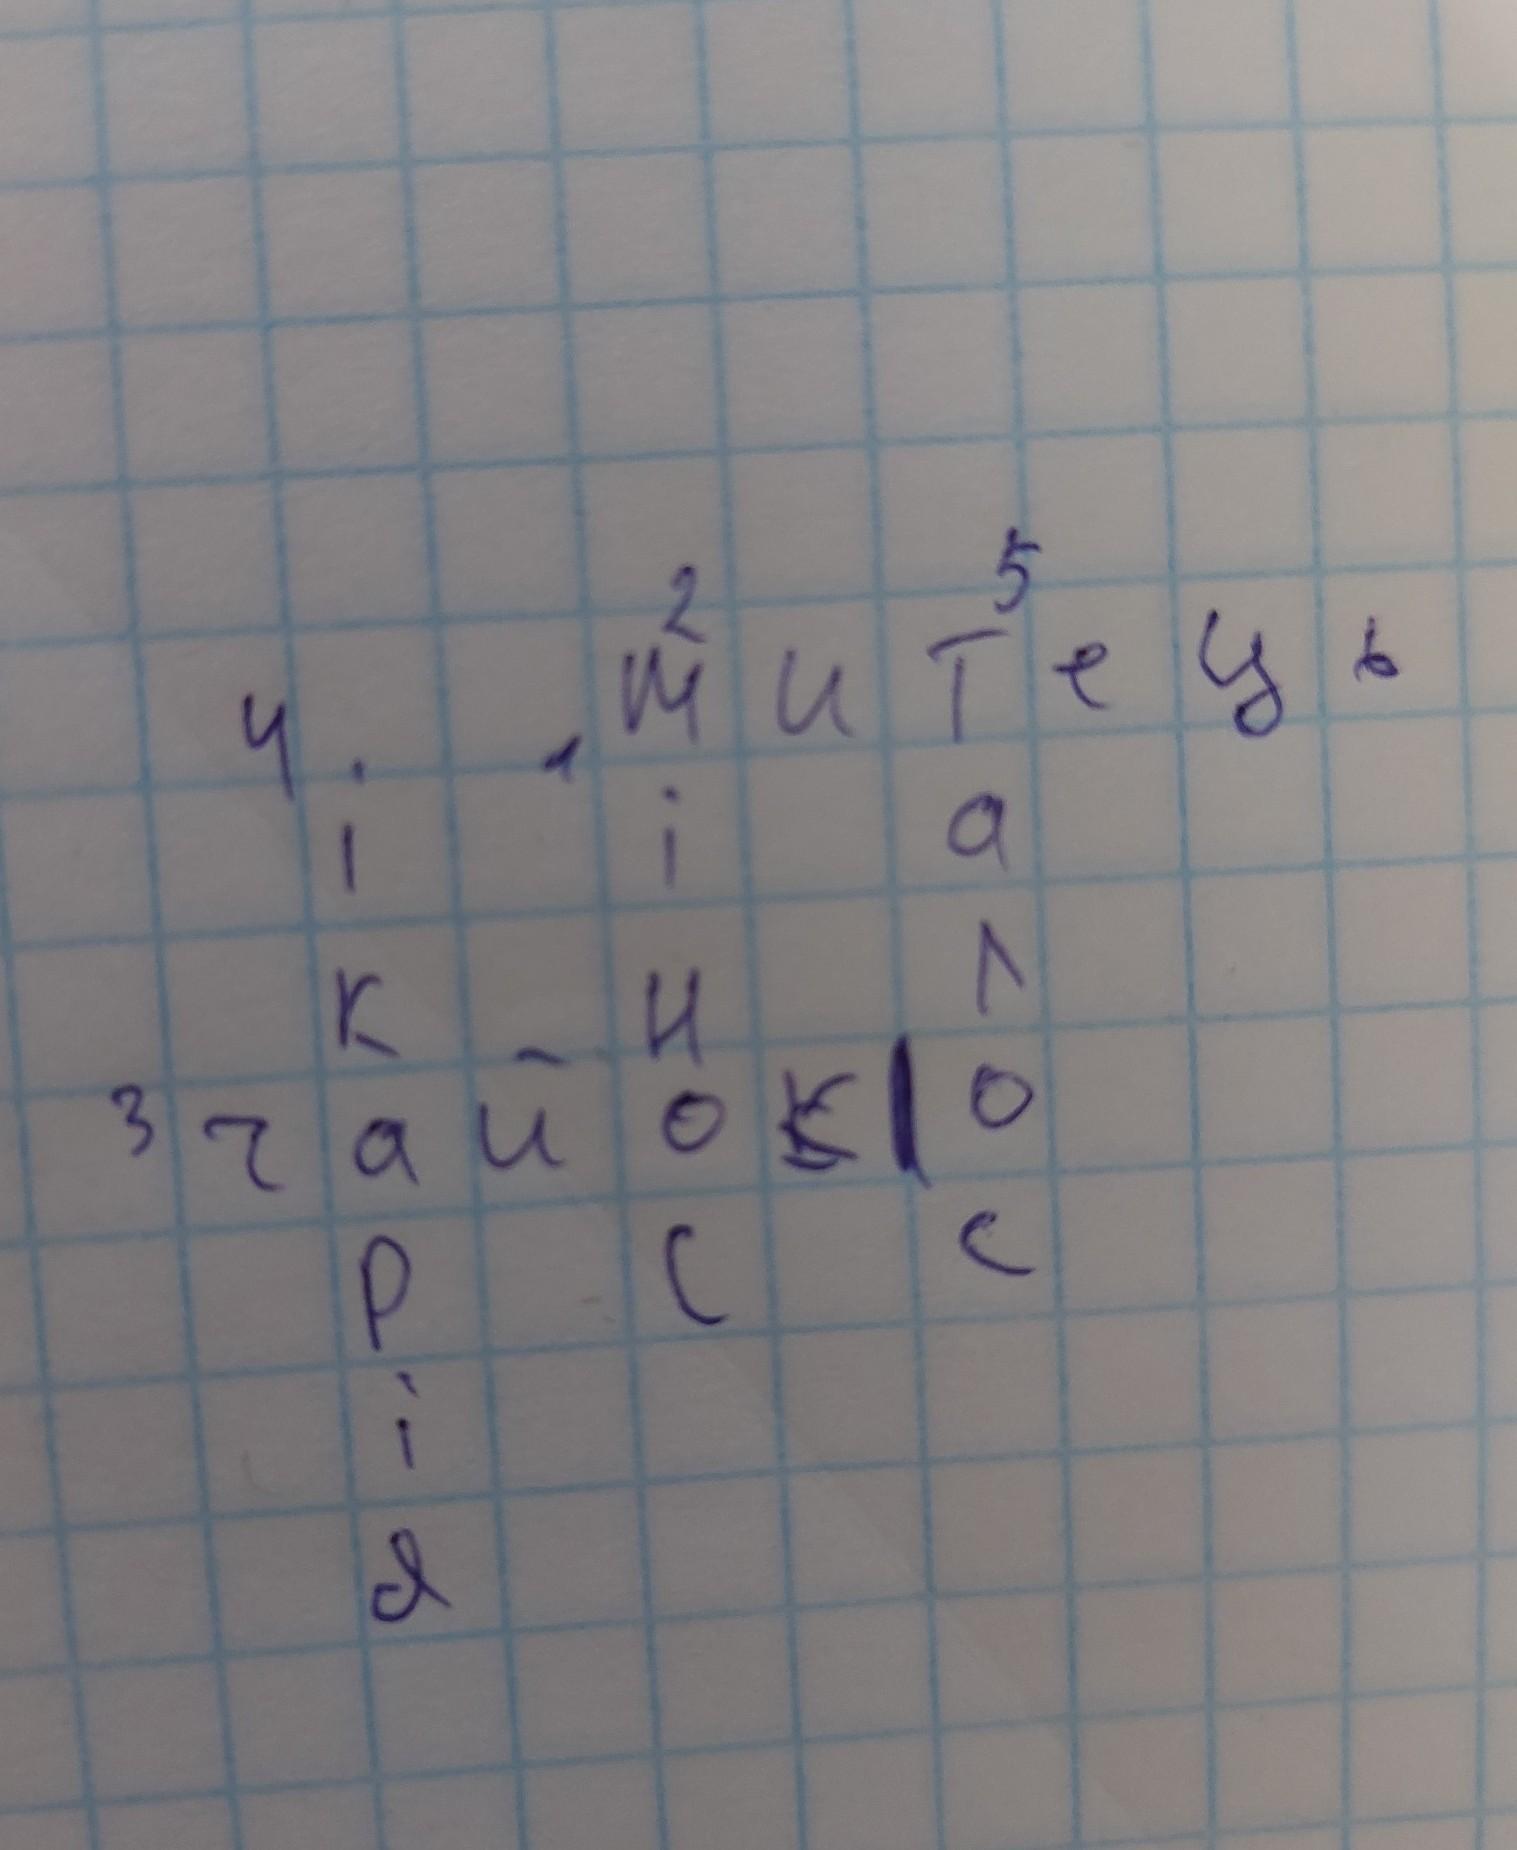 2 5
4 1 м и т е ц ь
і і а
к н л
3 г а й о к о
р с с
і
д